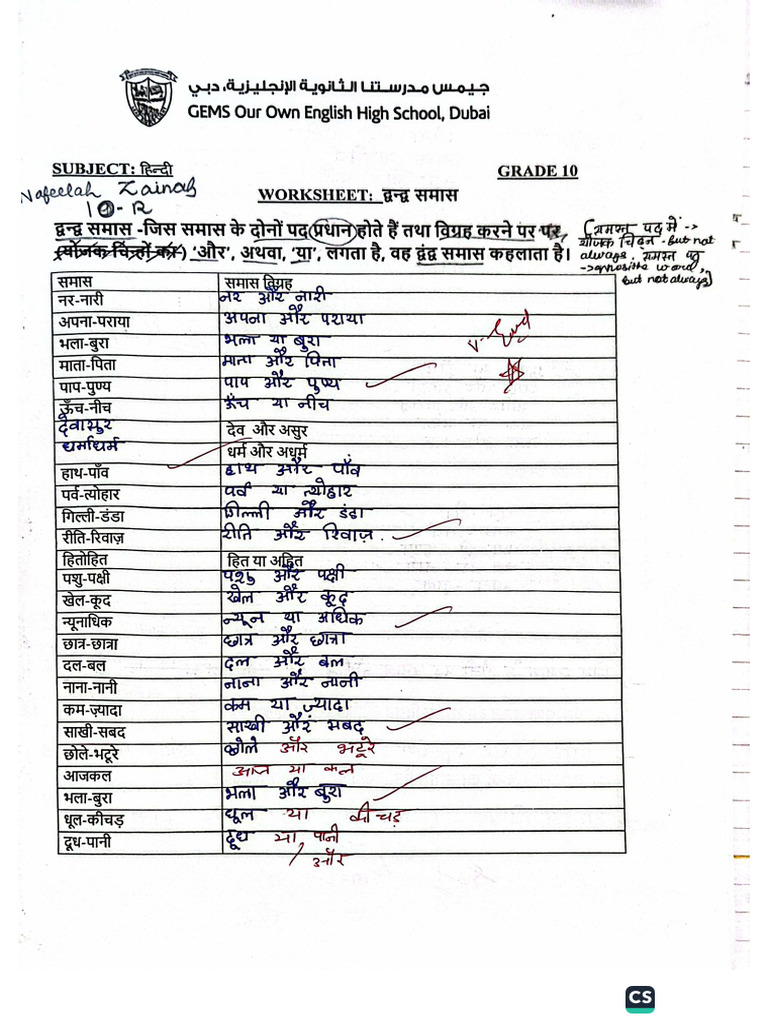 جيمس مدرستنا الثانوية الإنجليزية، دبي
GEMS Our Own English High School, Dubai
SUBJECT: हिन्दी GRADE 10
Nafeelah Zainab
10-R
WORKSHEET: द्वन्द्व समास
द्वन्द्व समास -जिस समास के दोनों पद प्रधान होते हैं तथा विग्रह करने पर पर,
(योजक चिन्हों का) 'और', अथवा, 'या', लगता है, वह द्वंद्व समास कहलाता है।
(समस्त पद में ->
योजक चिह्न - but not
always. समस्त पद
-> opposite word,
but not always)
समास समास विग्रह
नर-नारी नर और नारी
अपना-पराया अपना और पराया
भला-बुरा भला या बुरा
माता-पिता माता और पिता
पाप-पुण्य पाप और पुण्य
ऊँच-नीच ऊँच या नीच
देवासुर देव और असुर
धर्माधर्म धर्म और अधर्म
हाथ-पाँव हाथ और पाँव
पर्व-त्योहार पर्व या त्योहार
गिल्ली-डंडा गिल्ली और डंडा
रीति-रिवाज़ रीति और रिवाज़.
हितोहित हित या अहित
पशु-पक्षी पशु और पक्षी
खेल-कूद खेल और कूद
न्यूनाधिक न्यून या अधिक
छात्र-छात्रा छात्र और छात्रा
दल-बल दल और बल
नाना-नानी नाना और नानी
कम-ज़्यादा कम या ज़्यादा
साखी-सबद साखी और सबद
छोले-भटूरे छोले और भटूरे
आजकल आज या कल
भला-बुरा भला और बुरा
धूल-कीचड़ धूल या कीचड़
दूध-पानी दूध या पानी
और
CS